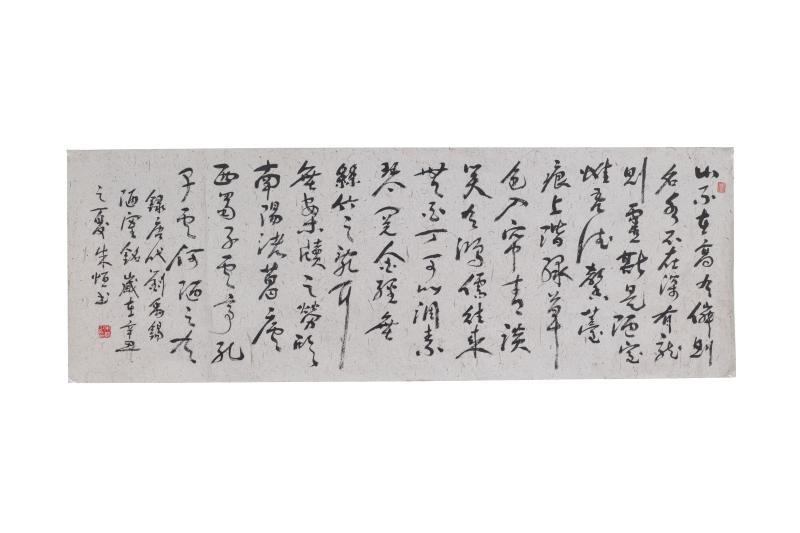 山不在高有僊則
名水不在深有龍
則靈斯是陋室
惟吾德馨薹
痕上階綠草
色入帘青談
笑有鴻儒往來
無白丁可以調素
琴閱金經無
絲竹之亂耳
無案牘之勞形
南陽諸葛廬
西蜀子雲亭孔
子云何陋之有
錄唐代劉禹錫
陋室銘歲在辛丑
之夏朱恒书